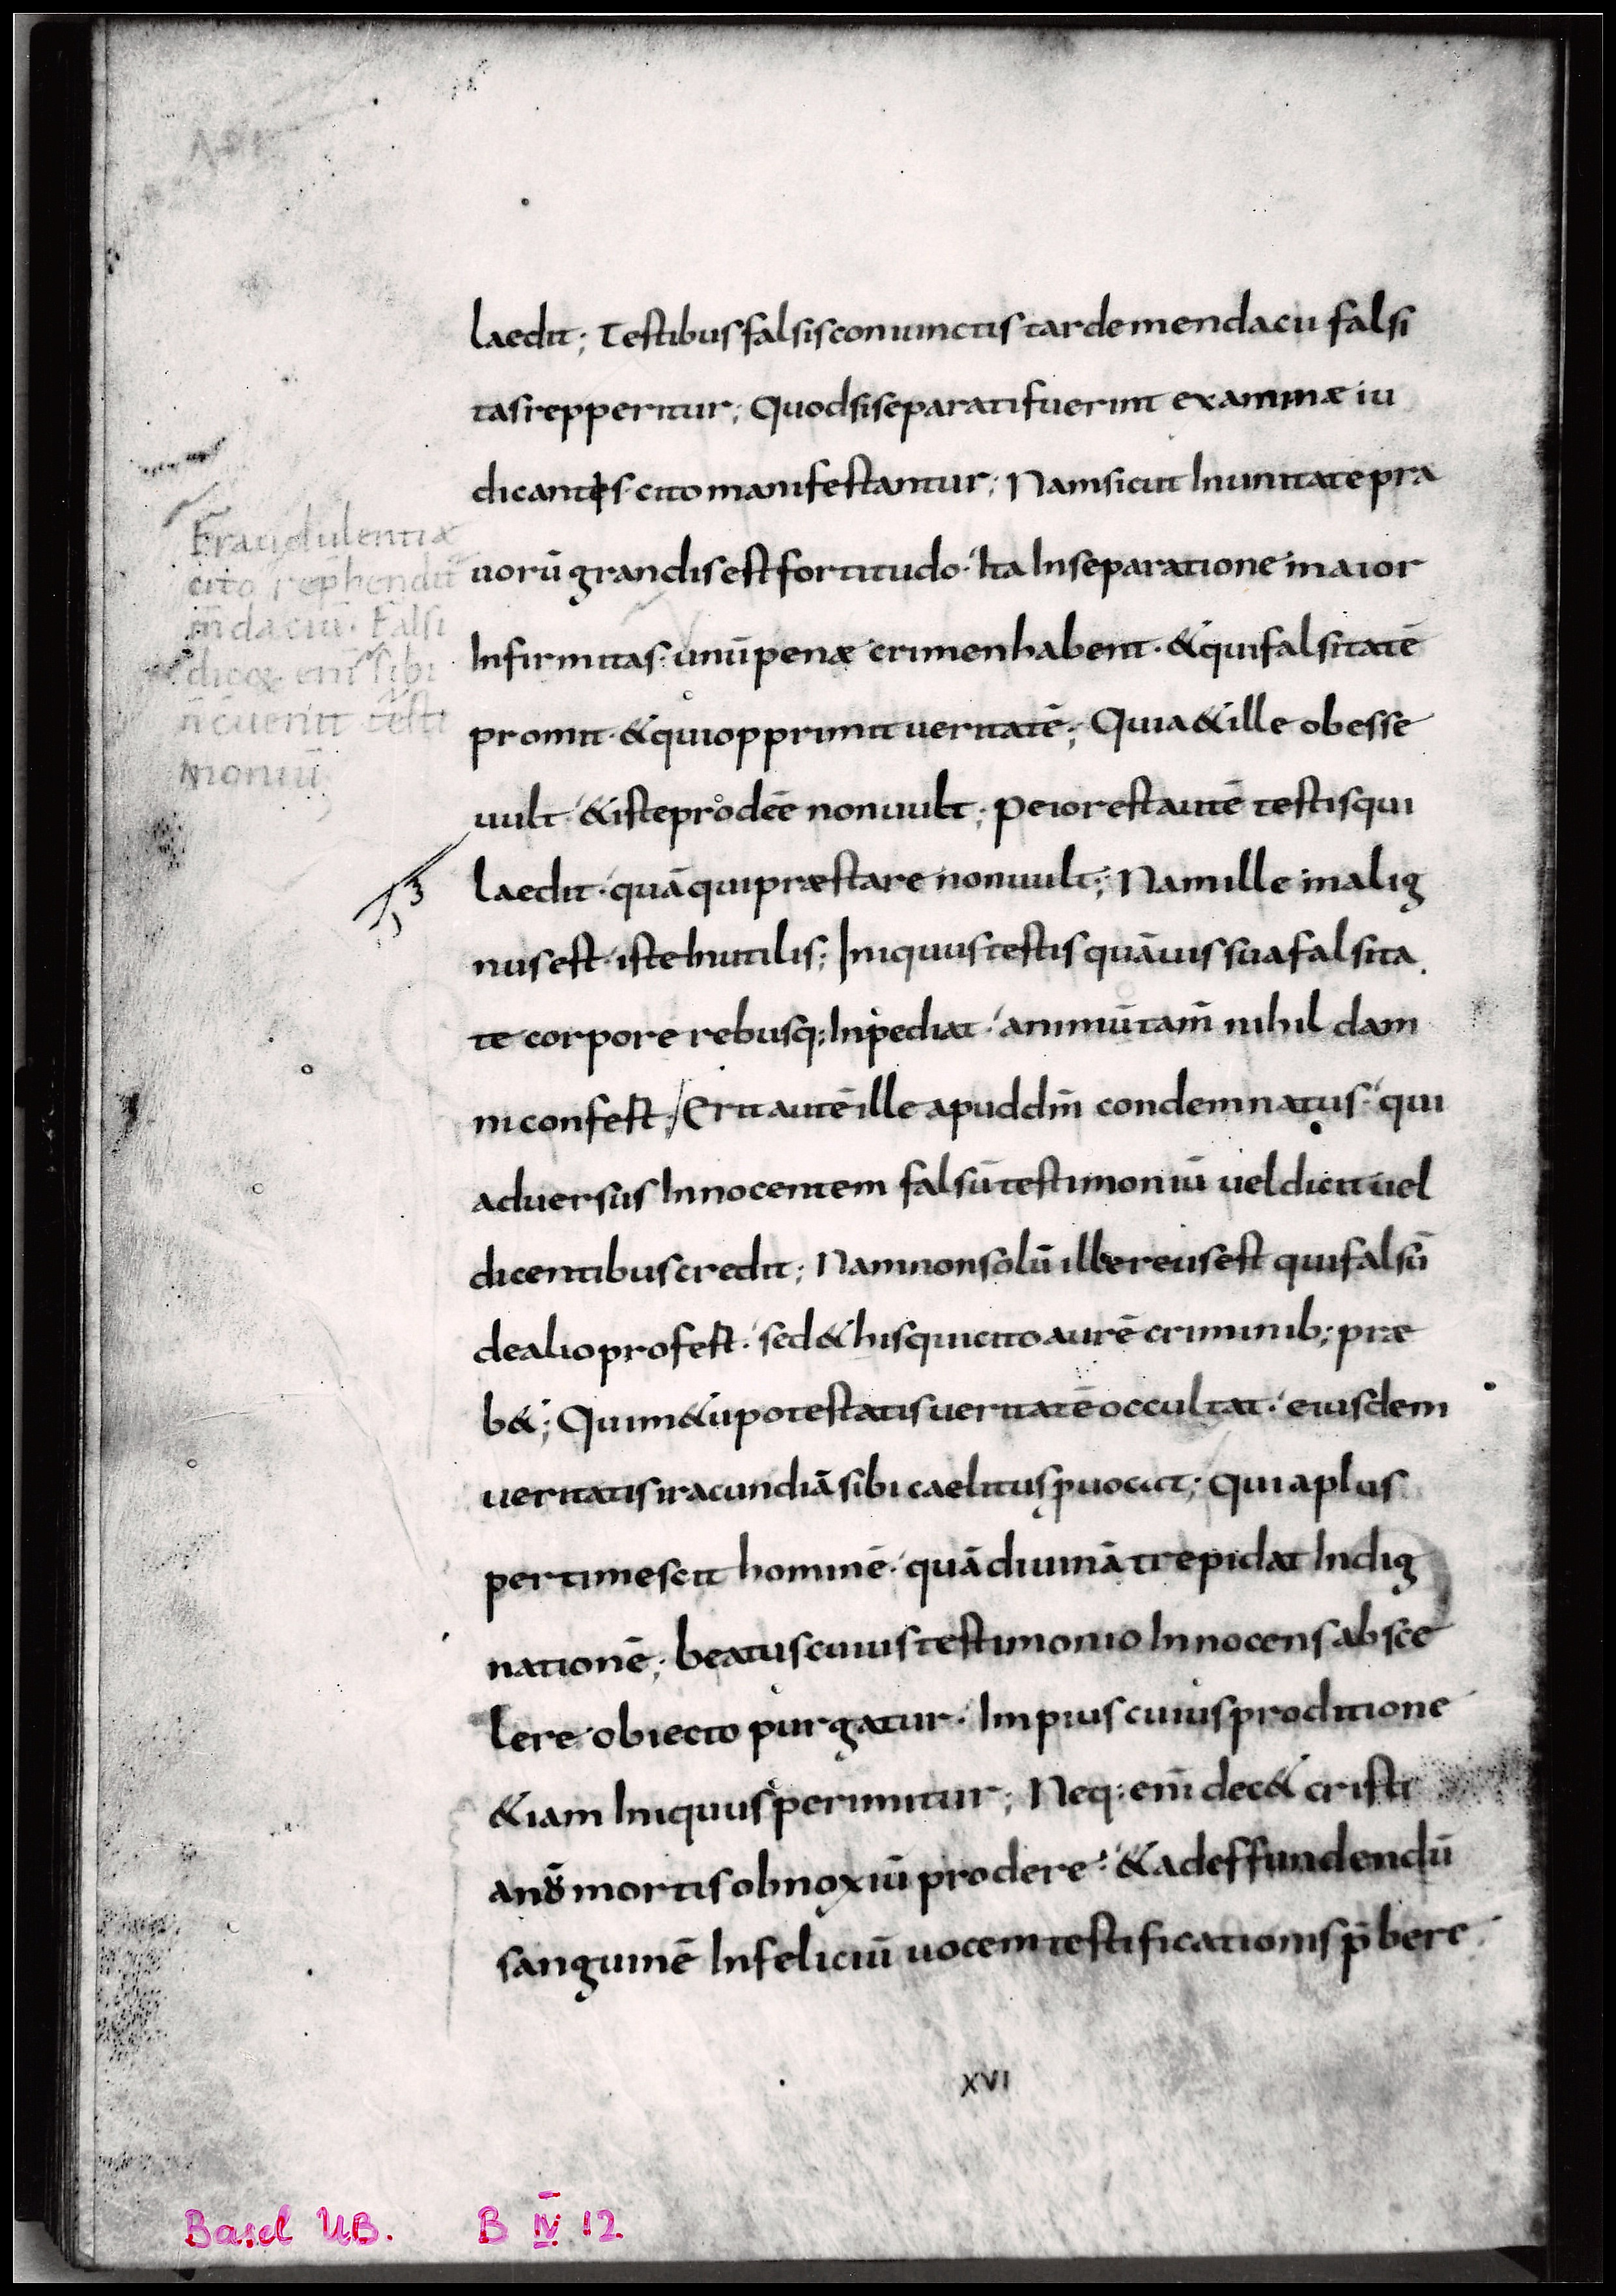 laedit; Testibus falsis coniunctis tarde mendacii falsi
tas repperitur; Quod si separati fuerint examinæ iu
dicantes cito manifestantur; Nam sicut In unitate pra
uorū grandis est fortitudo· Ita In separatione maior
Infirmitas· unū penæ crimen habent· & qui falsitatē
promit· & qui opprimit ueritatē; Quia & ille obesse
uult· & iste prodēe non uult; Peior est autē testis qui
laedit· quā qui præstare non uult; Nam ille malig
nus est· iste Inutilis; Iniquus testis quāuis sua falsita
te corpore rebusq; Inpediat· animū tam̄ nihil dam
ni confest; Erit autē ille apud dm̄ condemnatus· qui
aduersus Innocentem falsū testimoniū uel dicit uel
dicentibus credit; Nam non solū ille reus est qui falsū
de alio profest· sed & his qui cito aurē criminib; præ
b&; Qui m&u potestatis ueritatē occultat· eiusdem
ueritatis iracundiā sibi caelitus ꝓuocat; Quia plus
pertimescit hominē· quā diuinā trepidat Indig
nationē; beatus cuius testimonio Innocens ab sce
lere obiecto purgatur· Impius cuius proditione
&iam Iniquus perimitur; Neq; enī dec& cristi
anō mortis obnoxiū prodere· & ad effundendū
sanguinē Infeliciū uocem testificationis p̄bere
Fraudulentiæ
cito rep̄hendit
m̄daciū· Falsi
dicoꝝ enī sibi
n̄ cuenit testi
moniū
XVI
Basel UB. B IV 12